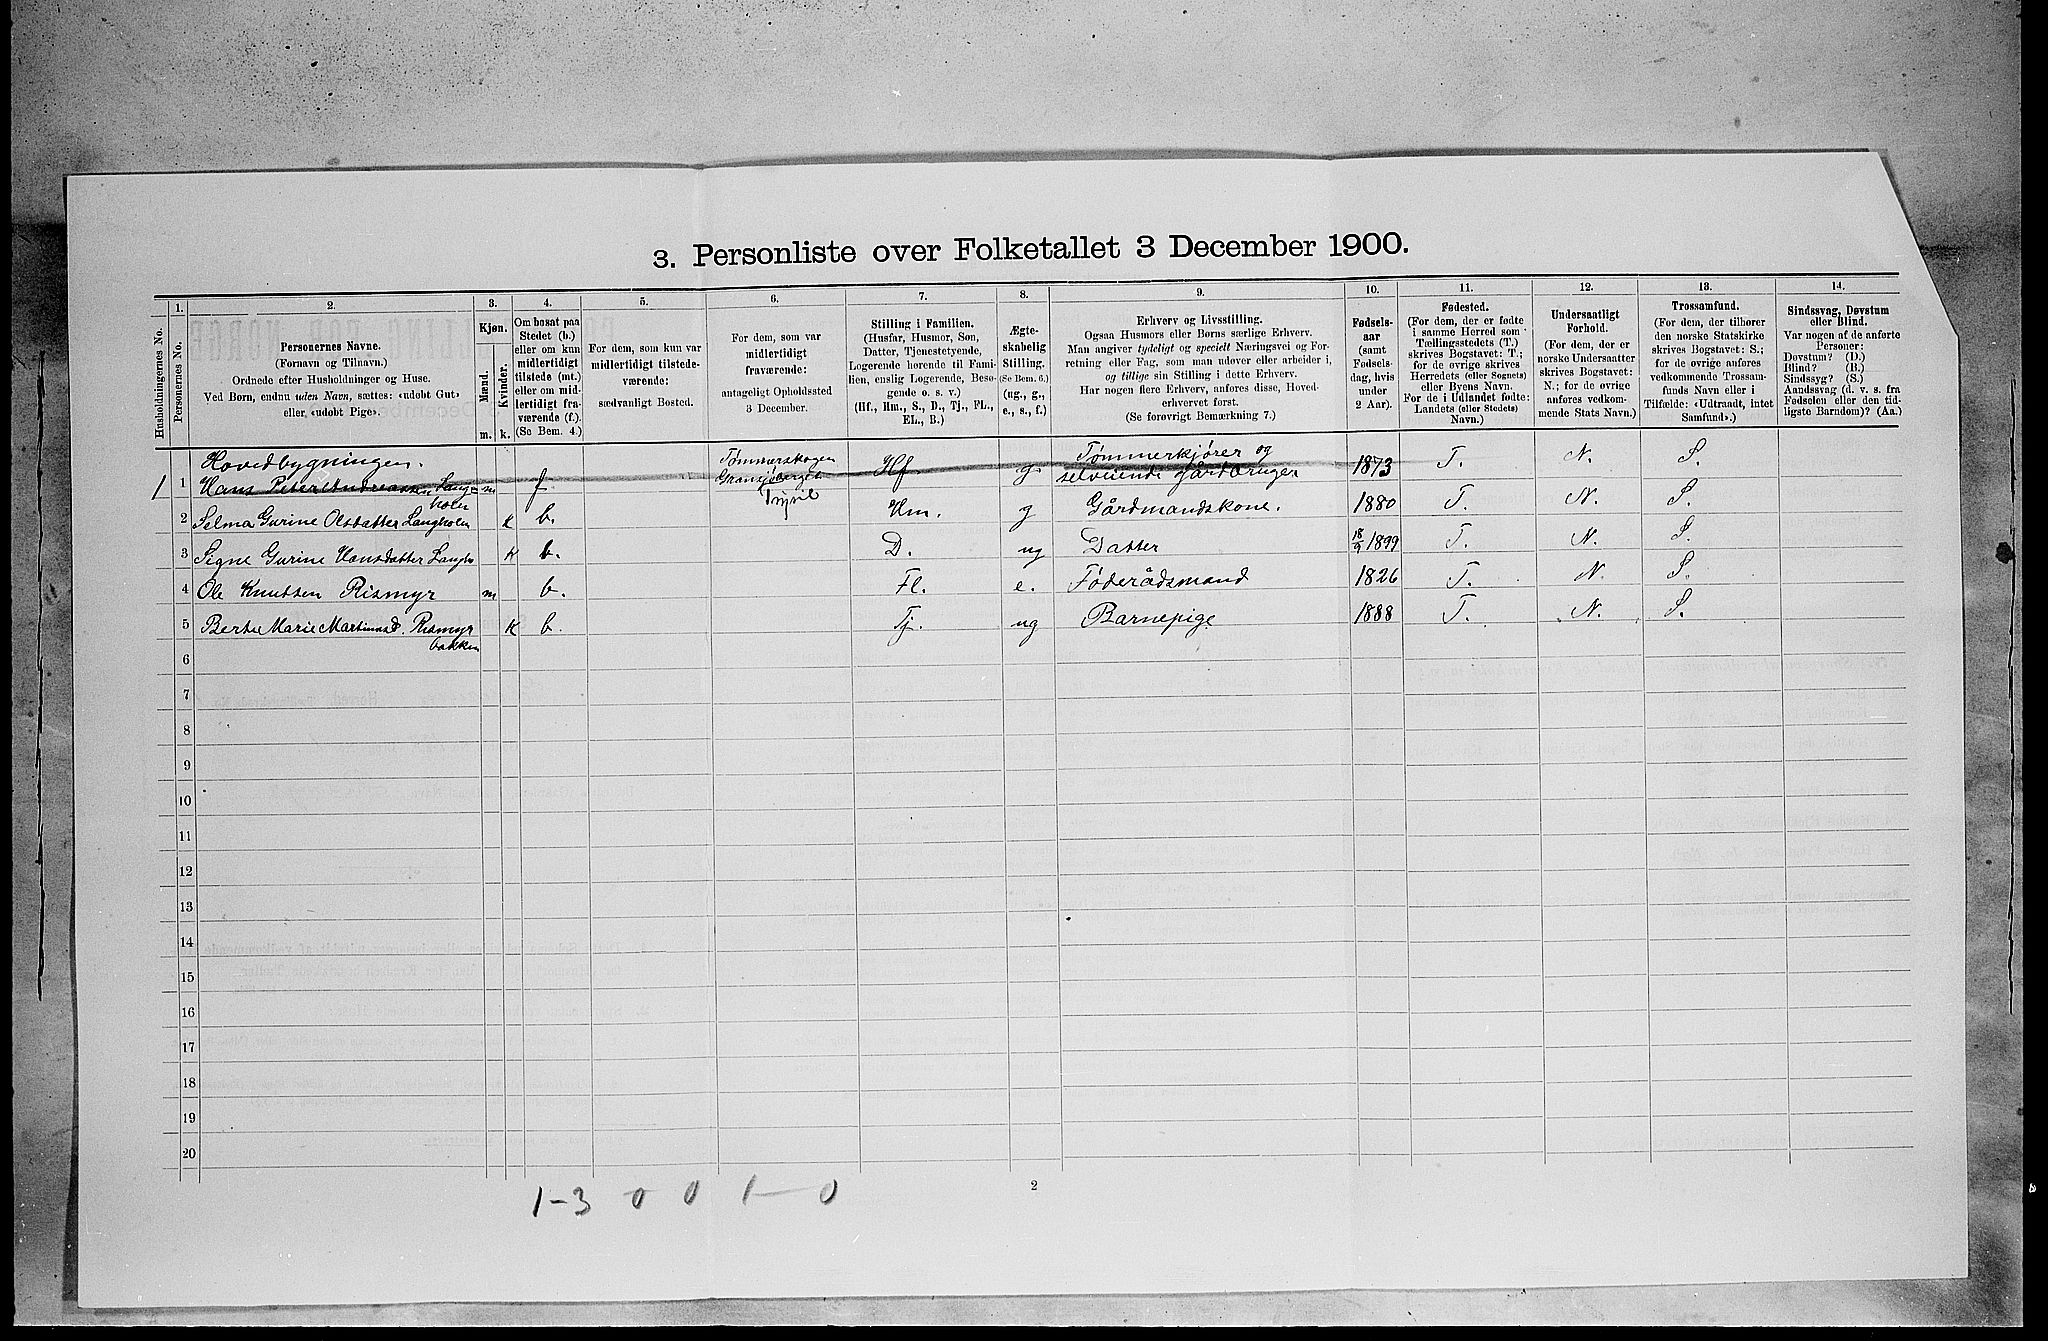 3. Personliste over Folketallet 3 December 1900.
1.
2.
3.
4.
5.
6.
7.
8.
9.
10.
11.
12.
13.
14.
Husholdningernes No.
Personernes No.
Personernes Navne.
(Fornavn og Tilnavn.)
Ordnede efter Husholdninger og Huse.
Ved Børn, endnu uden Navn, sættes: «udøbt Gut»
eller, «udøbt Pige».
Kjøn.
Mænd.
Kvinder.
m.
k.
Om bosat paa
Stedet (b.)
eller om kun
midlertidigt
tilstede (mt.)
eller om mid-
lertidigt fra-
værende (f.).
(Se Bem. 4.)
For dem, som kun var
midlertidigt tilstede-
værende:
sædvanligt Bosted.
For dem, som var
midlertidigt
fraværende:
antageligt Opholdssted
3 December.
Stilling i Familien.
(Husfar, Husmor, Søn,
Datter, Tjenestetyende,
Logerende hørende til Fami-
lien, enslig Logerende, Besø-
gende o. s. v.)
(Hf., Hm., S., D., Tj., FL.,
EL., B.)
Ægte-
skabelig
Stilling.
(Se Bem. 6.)
(ug., g.,
e., s., f.)
Erhverv og Livsstilling.
Ogsaa Husmors eller Børns særlige Erhverv.
Man angiver tydeligt og specielt Næringsvei og For-
retning eller Fag, som man udøver eller arbeider i,
og tillige sin Stilling i dette Erhverv.
Har nogen flere Erhverv, anføres disse, Hoved-
erhvervet først.
(Se forøvrigt Bemærkning 7.)
Fødsels-
aar
(samt
Fødsels-
dag, hvis
under
2 Aar).
Fødested.
(For dem, der er fødte
i samme Herred som
Tællingsstedets (T.)
skrives Bogstavet: T.;
for de øvrige skrives
Herredets (eller Sognets)
eller Byens Navn.
For de i Udlandet fødte:
Landets (eller Stedets)
Navn.)
Undersaatligt
Forhold.
(For dem, der er
norske Undersaatter
skrives Bogstavet:
N.; for de øvrige
anføres vedkom-
mende Stats Navn.)
Trossamfund.
(For dem, der tilhører
den norske Statskirke
skrives Bogstavet: S.;
for de øvrige anføres
vedkommende Trossam-
funds Navn eller i
Tilfælde: «Udtraadt, intet
Samfund».)
Sindssvag, Døvstum
eller Blind.
Var nogen af de anførte
Personer:
Døvstum? (D.)
Blind? (B.)
Sindssyg? (S.)
Aandssvag (d. v. s. fra
Fødselen eller den tid-
ligste Barndom)? (Aa.)
Hovedbygningen.
1 1 Hans Peter Andreassen Lang-
holen m f. Tømmerskogen
Trysil Hf g. Tømmerkjører og
selveiende gårdbruger 1873 T. N. S.
2 Selma Gurine Olsdatter Langholen k b. Hm. g Gårdmandskone. 1880 T. N. S.
3 Signe Gurine Hansdatter Langho k b. D. ug Datter 18/9 1899 T. N. S.
4 Ole Knutsen Rismyr m b. Fl. e. Föderådsmand 1826 T. N. S.
5 Berte Marie Martinusd. Rismyr
bakken k b. Tj. ug Barnepige 1888 T. N. S.
6
7
8
9
10
11
12
13
14
15
16
17
18
19
20
1-3 0 0 1-0
2